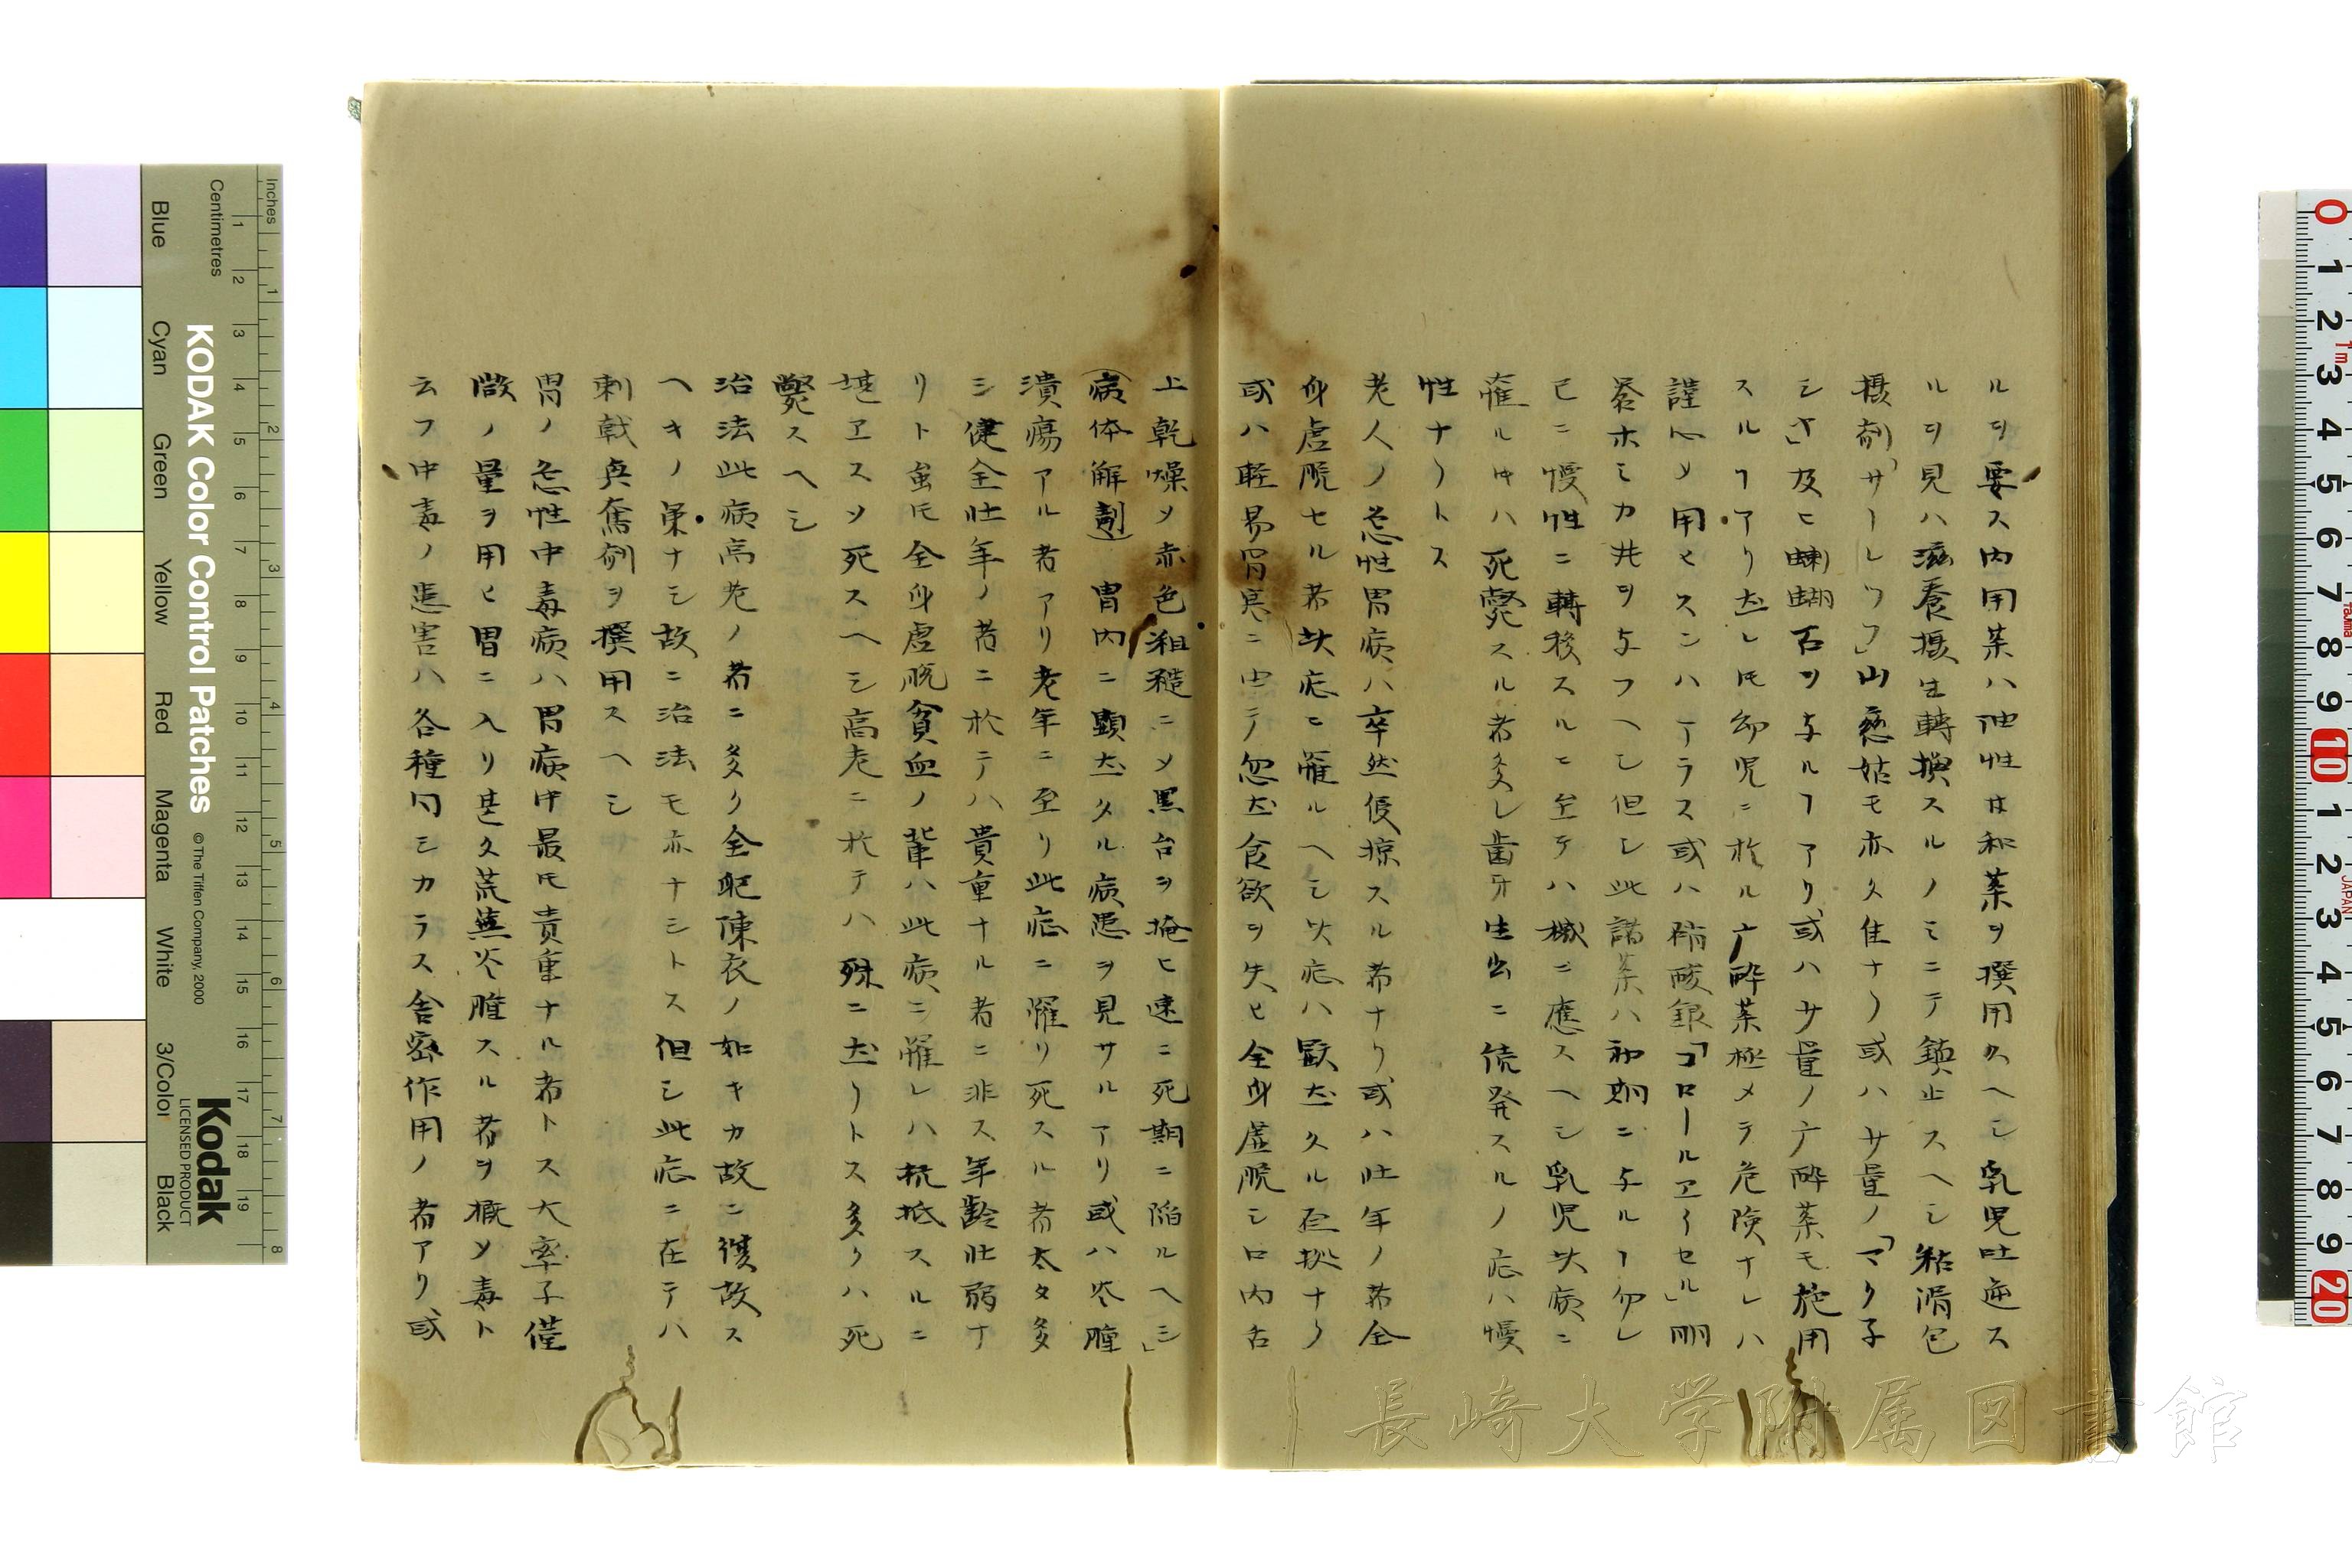 ルヲ要ス内用薬ハ油性ノ和薬ヲ撰用スヘシ乳児吐逆ス
ルヲ見ハ滋養摂生轉換スルノミニテ鎮止スヘシ粘滑包
摂剤「サーレフ」山慈姑モ亦タ佳ナリ或ハサ量ノ「マク子
シヤ」及ヒ蝲蛄石ヲ与ルヿアリ或ハサ量ノ广酔薬モ施用
スルヿアリ𪜈幼児ニ於ル广酔薬極メテ危険ナレハ
謹心メ用ヒスンハアラス或ハ硝酸銀「コロールエイセル」明
礬ホミカ丼ヲ与フヘシ但シ此諸薬ハ初期ニ与ルヿ勿レ
已ニ慢性ニ轉移スルニ至テハ機ニ應スヘシ乳児此病ニ
罹ル時ハ死斃スル者多シ歯牙生出ニ続発スルノ症ハ慢
性ナリトス
老人ノ急性胃病ハ卒然侵掠スル者ナリ或ハ壮年ノ者全
身虚脱セル者此症ニ罹ルヘシ此症ハ
或ハ軽易胃寒ニ由テ忽チ食欲ヲ失ヒ全身虚脱シ口内舌
上乾燥メ赤色粗糙ニメ黒台ヲ掩ヒ速ニ死期ニ陥ルヘシ」
(病体解剖)胃内ニ顕著タル病患ヲ見サルアリ或ハ焮腫
潰瘍アル者アリ老年ニ至リ此症ニ罹リ死スル者太タ多
シ健全壮年ノ者ニ於テハ貴重ナル者ニ非ス年齢壮弱ナ
リト虽𪜈全身虚脱貧血ノ輩ハ此病ニ罹レハ抗抵スルニ
堪エスメ死スヘシ高老ニ於テハ殊ニ甚シトス多クハ死
斃スヘシ
治法此病高老ノ者ニ多ク全躯陳衣ノ如キカ故ニ復故ス
ヘキノ策ナシ故ニ治法モ亦ナシトス但シ此症ニ在テハ
刺戟興奮剤ヲ撰用スヘシ
胃ノ急性中毒病ハ胃病中最𪜈貴重ナル者トス大率子僅
微ノ量ヲ用ヒ胃ニ入リ甚タ荒蕪焮腫スル者ヲ概メ毒ト
云フ中毒ノ患害ハ各種同シカラス舎密作用ノ者アリ或
KODAK Color Control Patches
© The Tiffen Company, 2000
Kodak
LICENSED PRODUCT
Inches
Centimetres
Blue
Cyan
Green
Yellow
Red
Magenta
White
3/Color
Black
JAPAN
長崎大学附属図書館